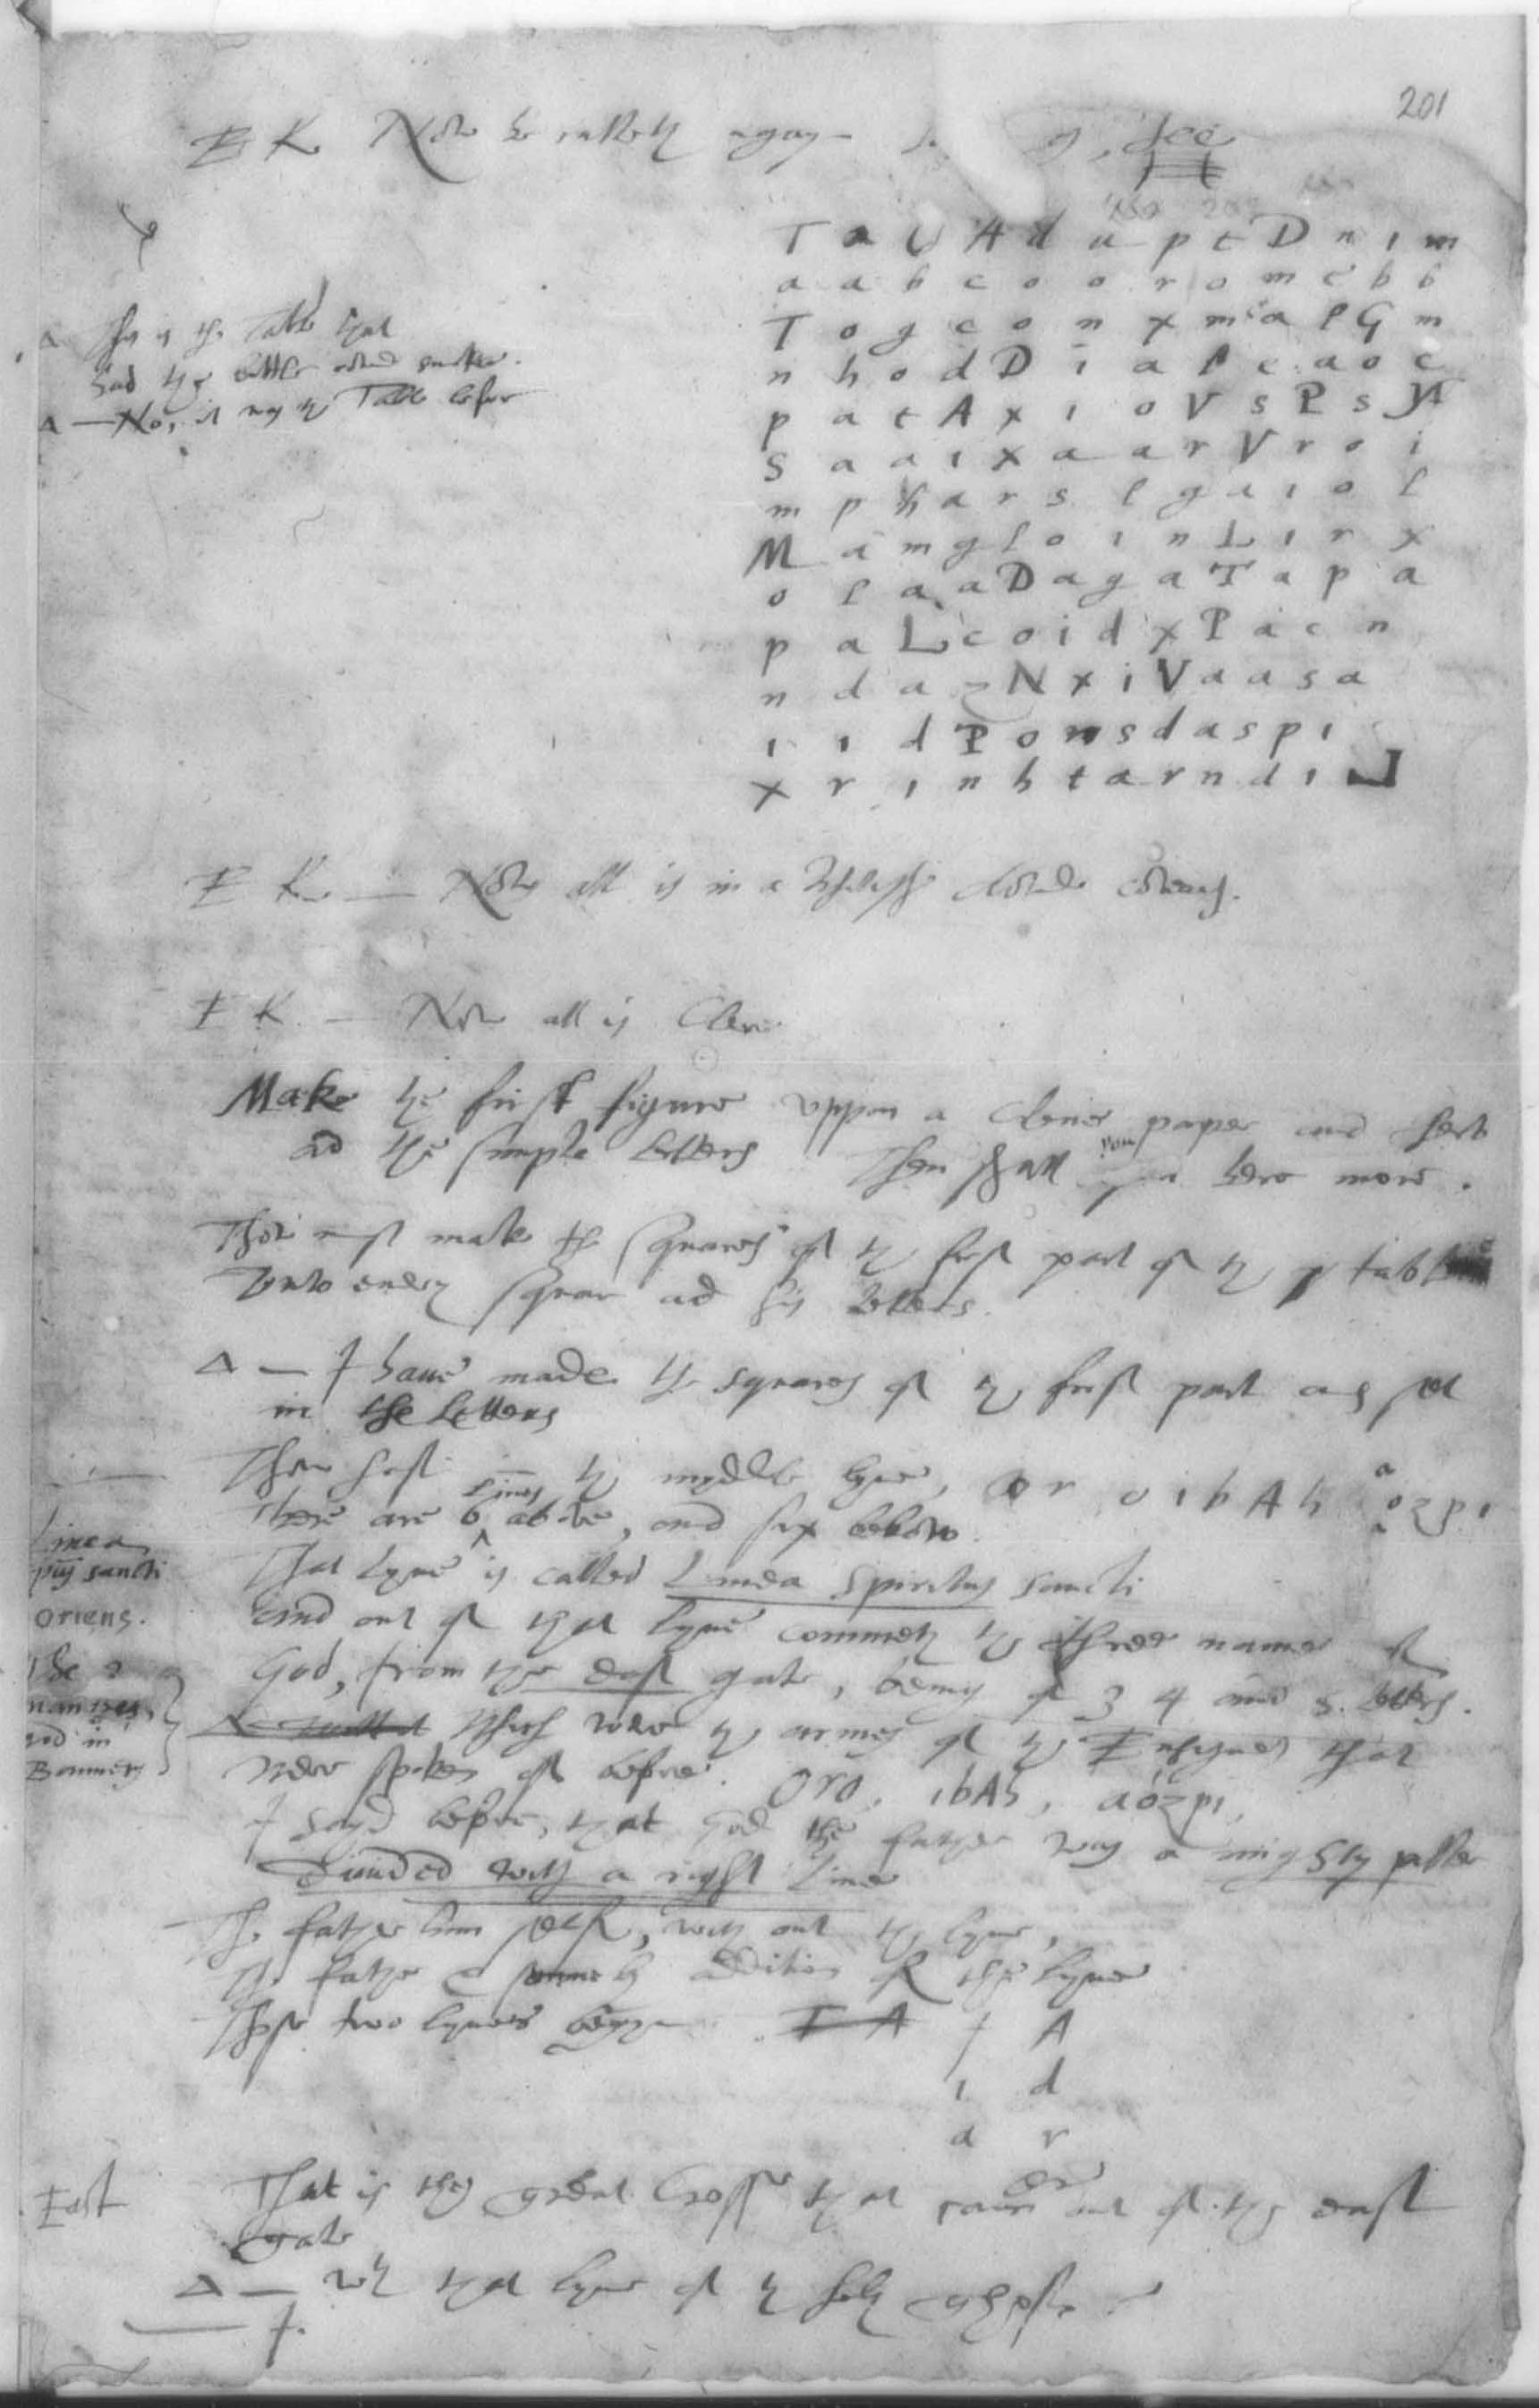 201
E K Now he calleth agayn
T a U A d u p t D n i m
a a b c o o r o m e b b
T o g c o n x m a l G m
n h o d D i a l e a o c
p a t A x i o V s P s
S a a i x a a r V r o i
m p h a r s l g a i o l
M a m g l o i n L i r x
o l a a D a g a T a p a
p a L c o i d x P a c n
n d a z N x i V a a s a
i i d P o n s d a s p i
x r i n h t a r n d i
Δ This is the Table that
had the little
Δ — No, it was the Table before
E K — Now all is in a Whitish clowde
E K — Now all is Clere
Make the first figure uppon a clene paper and
ad the simple letters Then shall you here more.
Thow must make the squares of the first part of the table
Unto every square ad his letters.
Δ — I have made the squares of the first part and set
in the letters
Thow hast the myddle lyne, o r o i b A h a o z p i
There are 6 lines above, and six below.
That lyne is called Linea Spiritus sancti
and out of that lyne commeth the three names of
God, from the east gate, being of 3 4 and 5. letters.
Which were the armes of the Ensignes that
were spoken of before. oro, ibAh, aozpi,
I sayd before, that God the father was a mighty piller
Divided with a right line
The father him self, with out the lyne,
The father & sonne by addition of the lyne
Those two lynes begyn I A
I A
i d
a r
That is the great Crosse that out of the east
gate
Δ — with that lyne of the holy ghoste
Linea
sancti
Oriens.
The 3
names
in
Banners
East